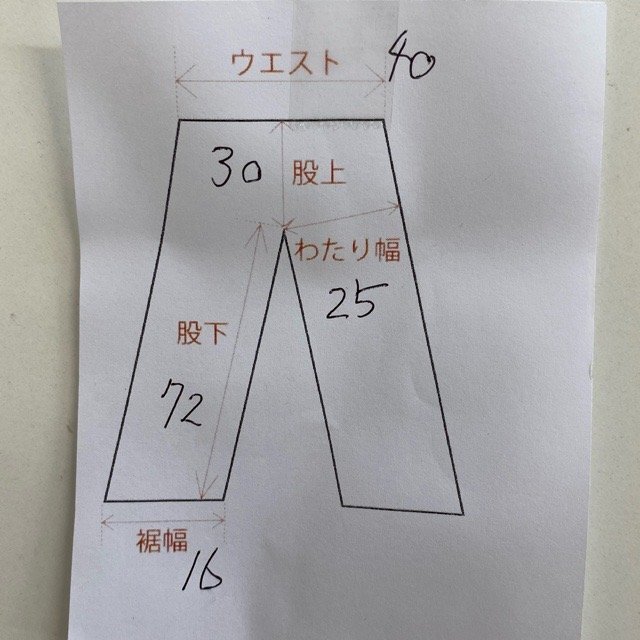 ウエスト
40
30
股上
わたり幅
25
股下
72
裾幅
16